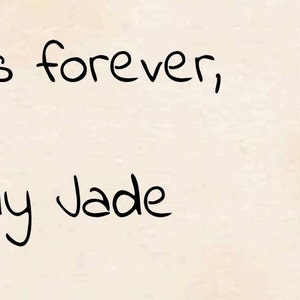 s forever,
y Jade